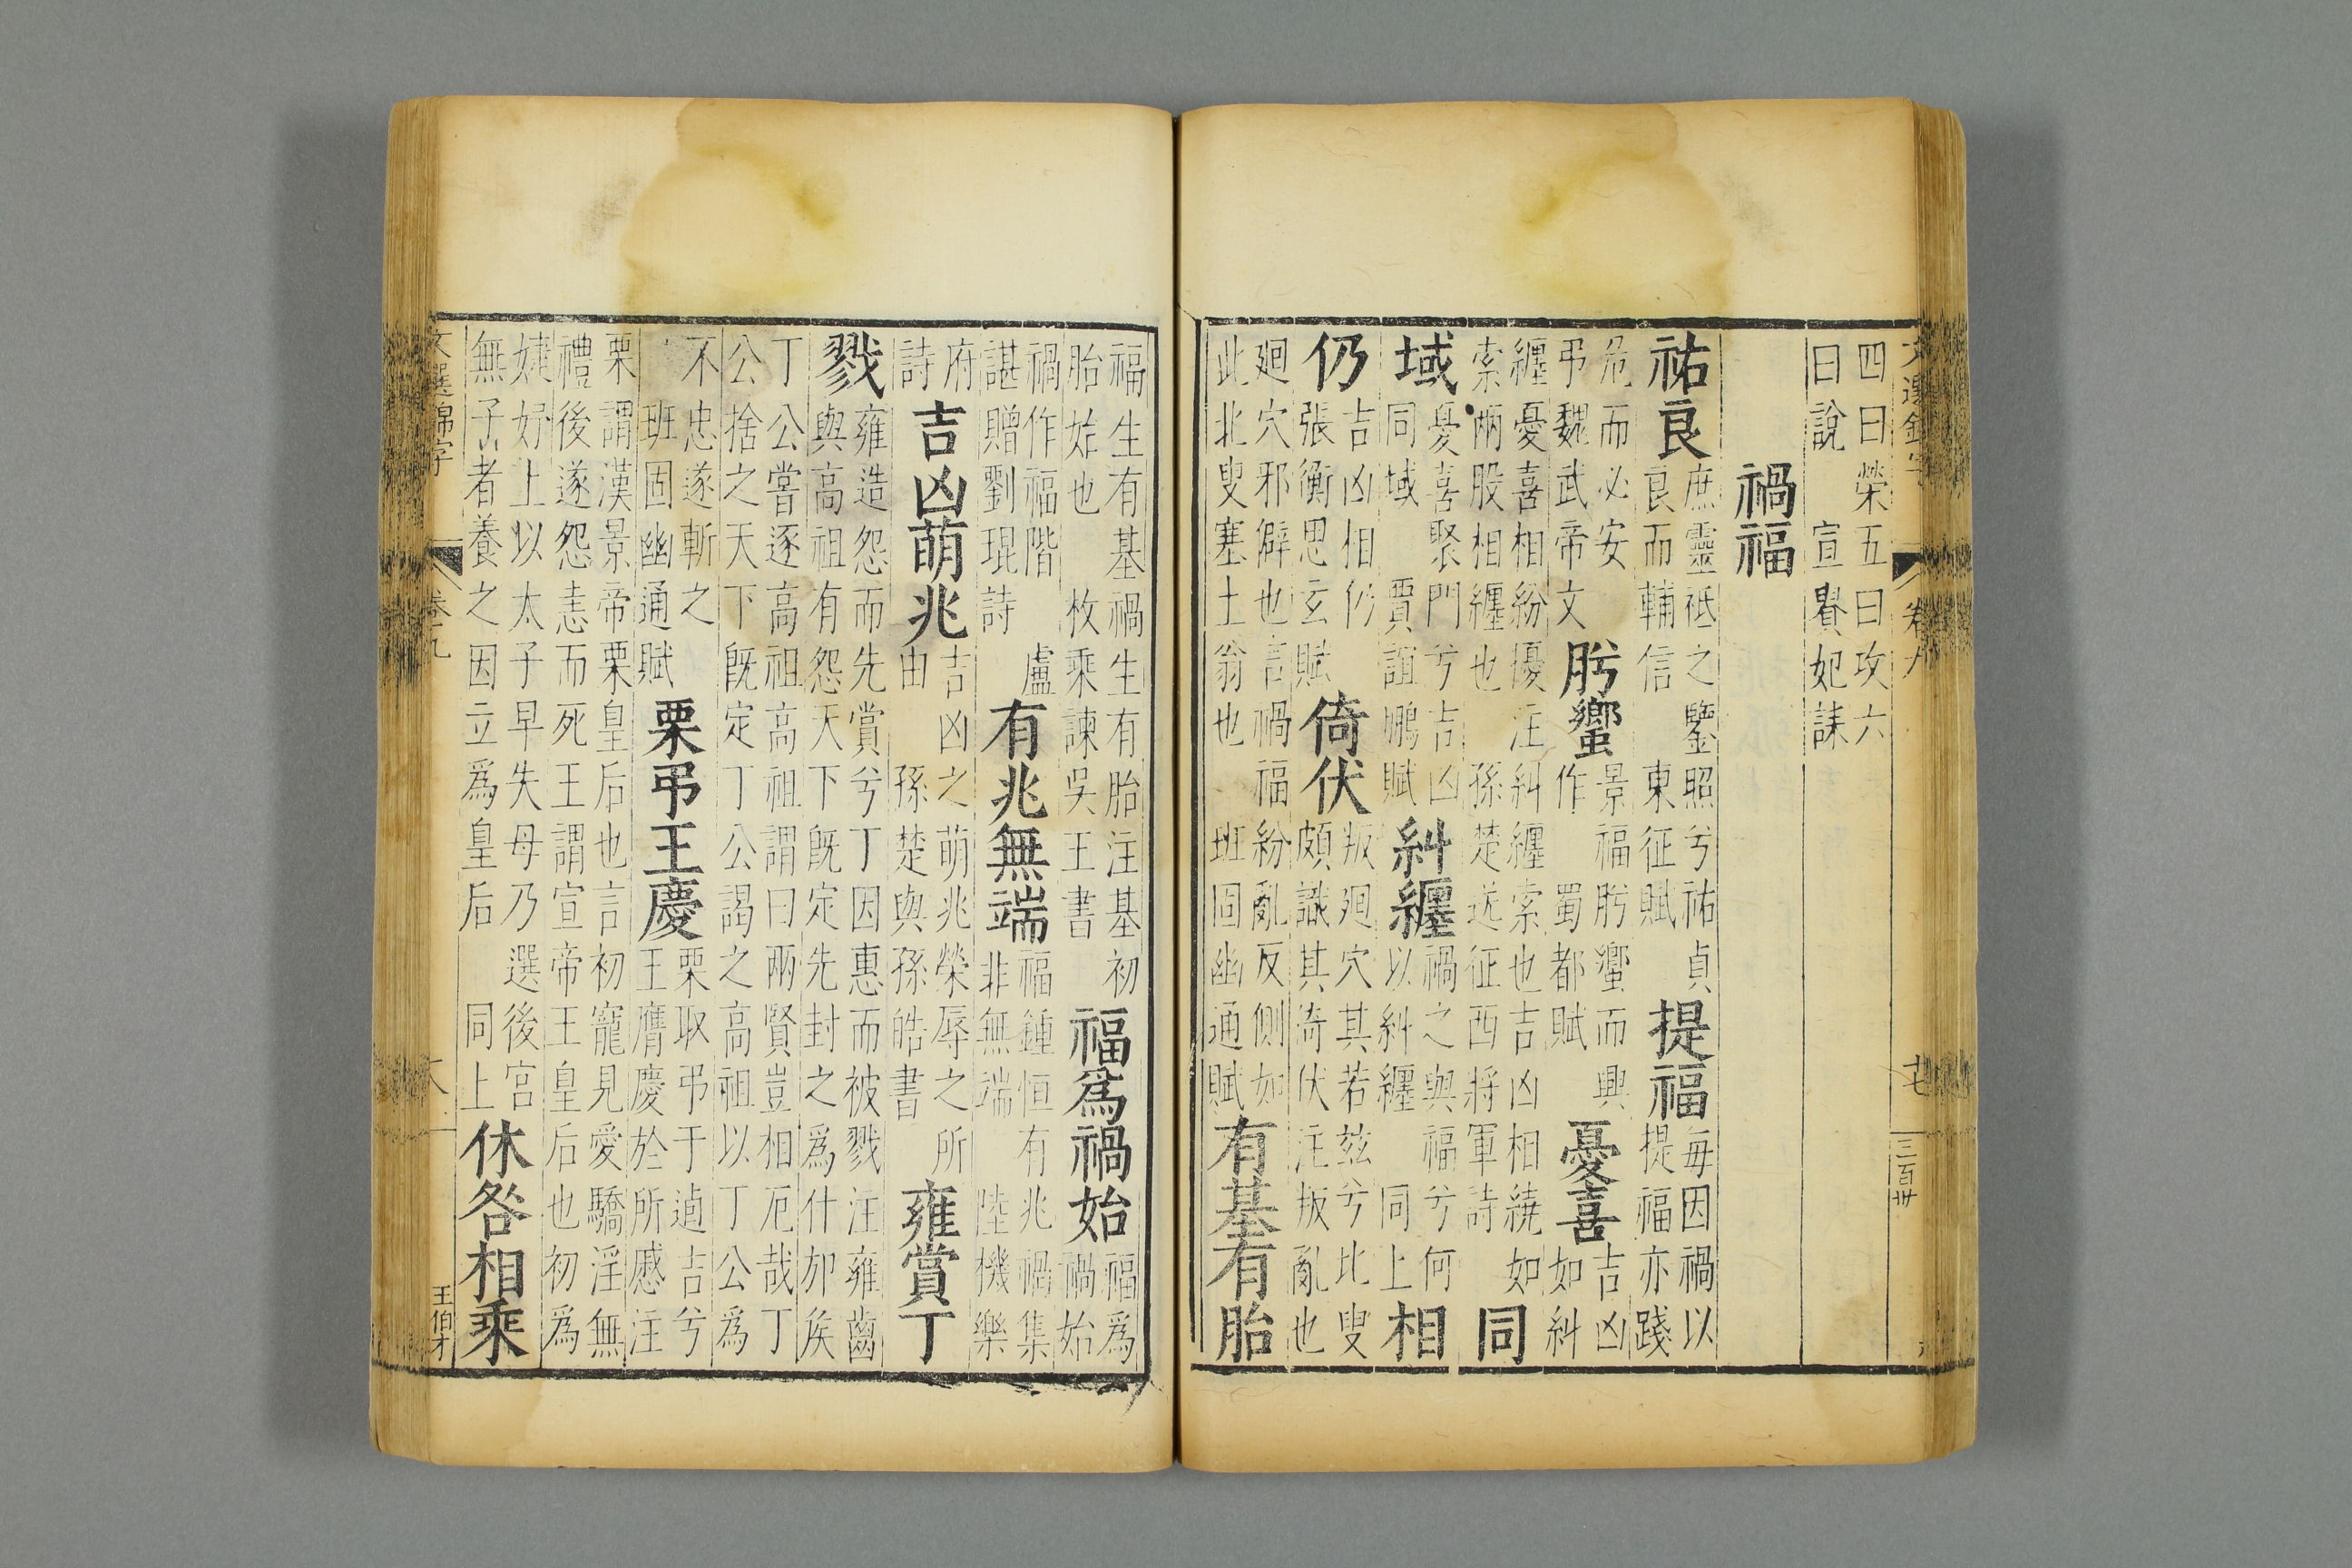 文選錦字 卷九 十七 三百卅
四曰榮五曰攻六曰說 宣貴妃誄
禍福
祐良 庶靈祗之鑒照兮祐貞良而輔信 東征賦 提福 每因禍以提福亦踐
危而必安 弔魏武帝文 肸蠁 景福肸蠁而興作 蜀都賦 憂喜 吉凶如糾
纏憂喜相紛擾注糾纏索也吉凶相繞如索兩股相纏也 孫楚送征西將軍詩 同
域 憂喜聚門兮吉凶同域 賈誼鵩賦 糾纏 禍之與福兮何以糾纏 同上 相
仍 吉凶相仍 張衡思玄賦 倚伏 叛迴穴其若兹兮比叟頗識其倚伏注叛亂也
迴穴邪僻也言禍福紛亂反側如此北叟塞上翁也 班固幽通賦 有基有胎
福生有基禍生有胎注基初胎始也 枚乘諫吳王書 福爲禍始 福爲禍始
禍作福階 盧諶贈劉琨詩 有兆無端 福鍾恒有兆禍集非無端 陸機樂
府詩 吉凶萌兆 吉凶之萌兆榮辱之所由 孫楚與孫皓書 雍賞丁
戮 雍造怨而先賞兮丁因惠而被戮注雍齒與高祖有怨天下既定先封之爲什邡侯
丁公嘗逐高祖高祖謂曰兩賢豈相厄哉丁公捨之天下既定丁公謁之高祖以丁公爲
不忠遂斬之 班固幽通賦 栗弔王慶 栗取弔于逌吉兮王膺慶於所慼注
栗謂漢景帝栗皇后也言初寵見愛驕淫無禮後遂怨恚而死王謂宣帝王皇后也初爲
婕妤上以太子早失母乃選後宮無子者養之因立爲皇后 同上 休咎相乘
文選錦字 卷九 王伯才